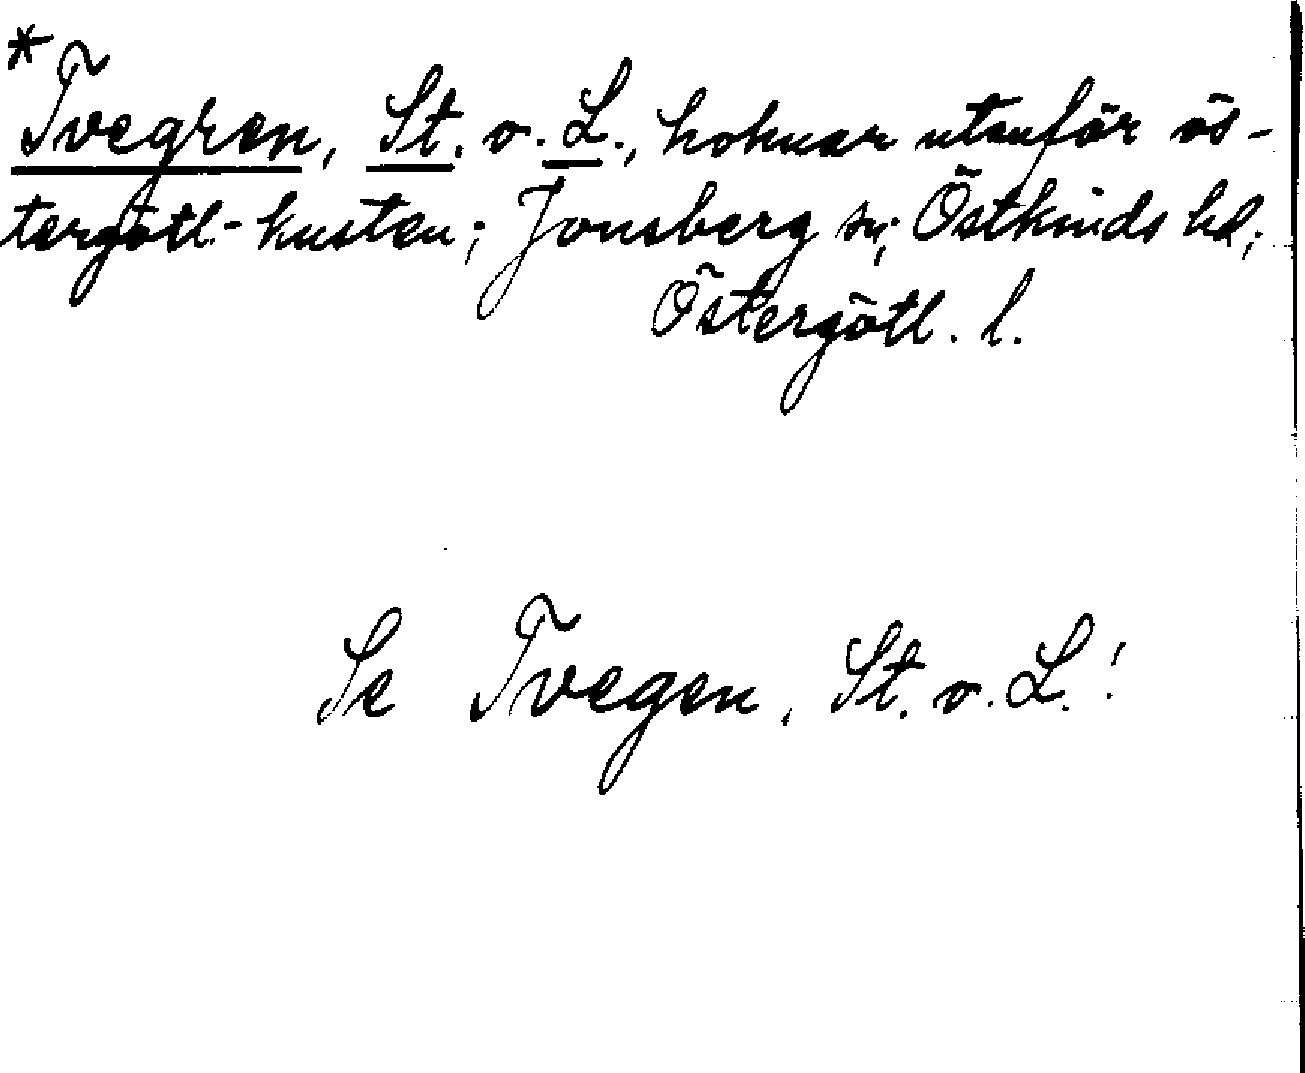 *Tvegren, St. o. L., holmar utanför ös-
tergötl-kusten; Jonsberg sn; Östkinds hd;
Östergötl. l.
Se Tvegen, St. o. L.!